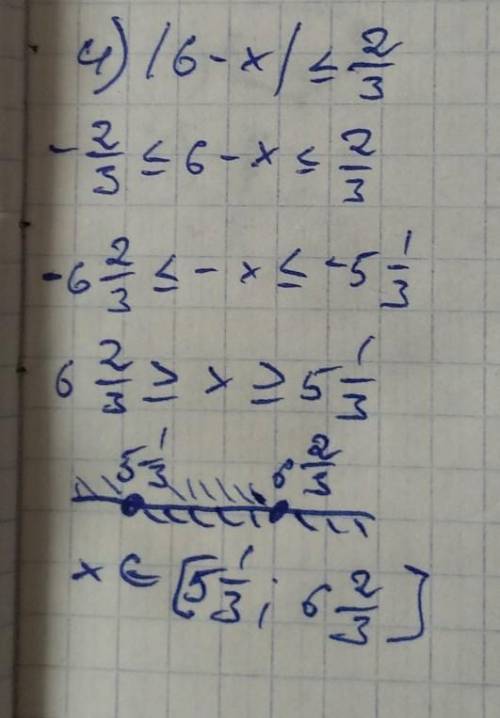 4) |6 - x| ≤ 2/3
- 2/3 ≤ 6 - x ≤ 2/3
-6 2/3 ≤ - x ≤ -5 1/3
6 2/3 ≥ x ≥ 5 1/3
5 1/3 6 2/3
x ∈ [5 1/3; 6 2/3]